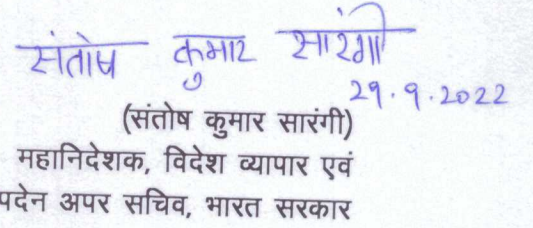 संतोष कुमार सारंगी
29.9.2022
(संतोष कुमार सारंगी)
महानिदेशक, विदेश व्यापार एवं
पदेन अपर सचिव, भारत सरकार